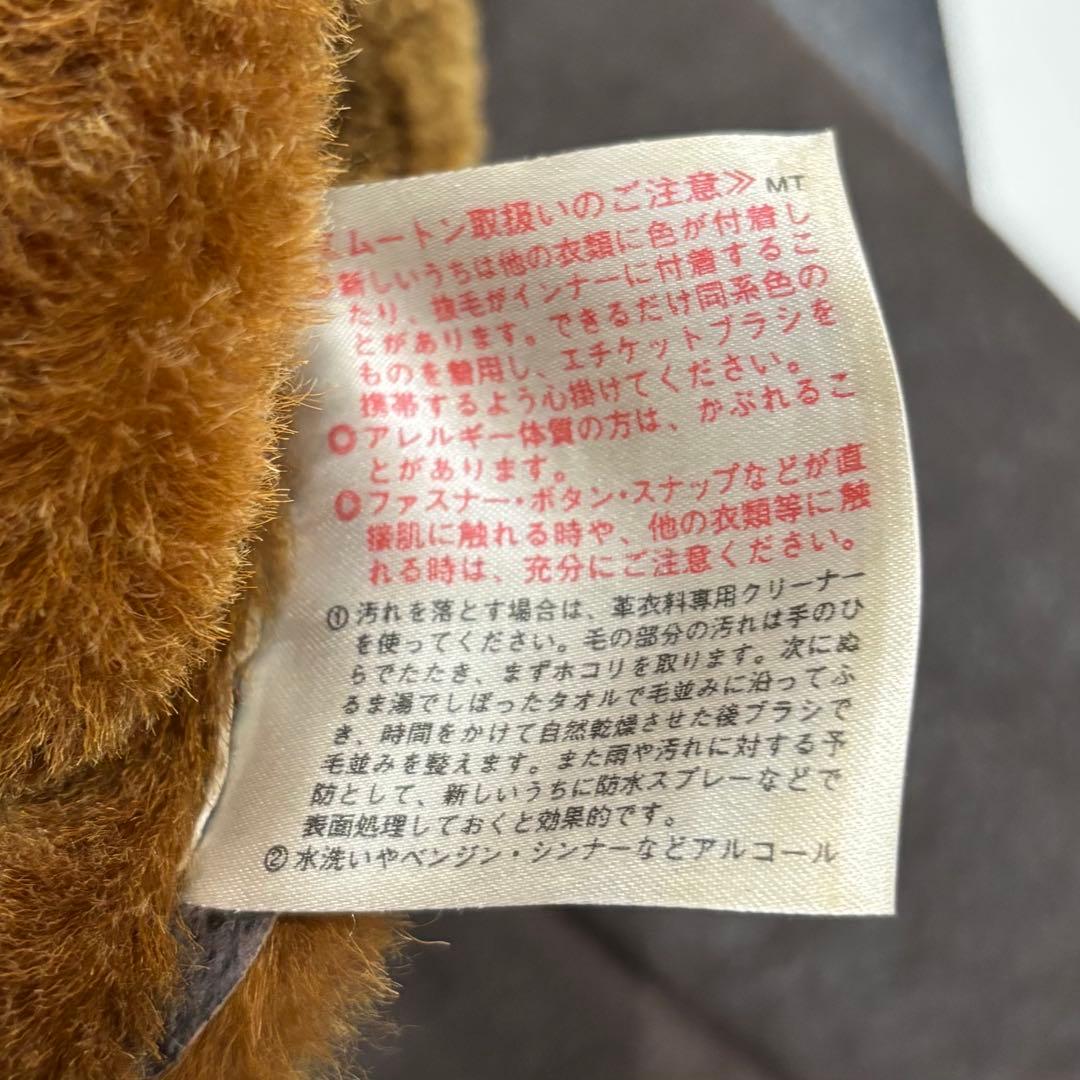 ≪ムートン取扱いのご注意≫ MT
◎新しいうちは他の衣類に色が付着し
たり、抜毛がインナーに付着するこ
とがあります。できるだけ同系色の
ものを着用し、エチケットブラシを
携帯するよう心掛けてください。
◎アレルギー体質の方は、かぶれるこ
とがあります。
◎ファスナー・ボタン・スナップなどが直
接肌に触れる時や、他の衣類等に触
れる時は、充分にご注意ください。
①汚れを落とす場合は、革衣料専用クリーナー
を使ってください。毛の部分の汚れは手のひ
らでたたき、まずホコリを取ります。次にぬ
るま湯でしぼったタオルで毛並みに沿ってふ
き、時間をかけて自然乾燥させた後ブラシで
毛並みを整えます。また雨や汚れに対する予
防として、新しいうちに防水スプレーなどで
表面処理しておくと効果的です。
②水洗いやベンジン・シンナーなどアルコール